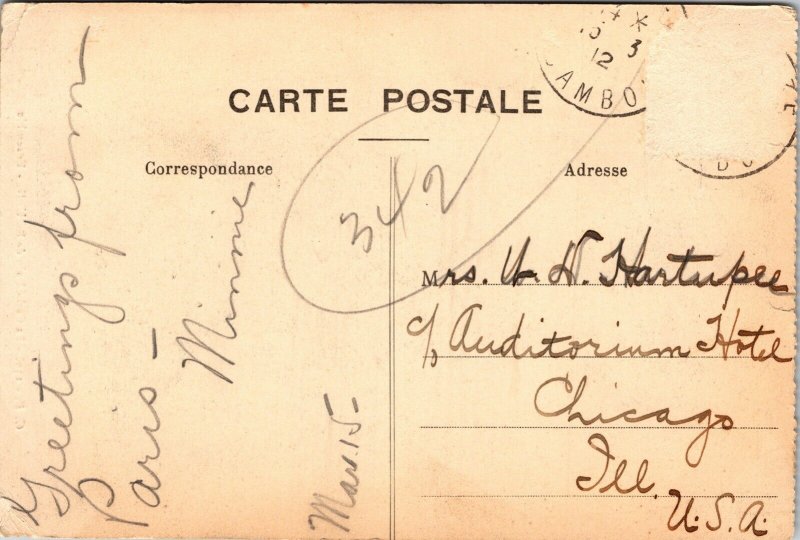 CARTE POSTALE
Correspondance
Adresse
Greetings from
Paris —
Minnie
Mar. 15 —
342
Mrs. W. H. Hartupee
c/o Auditorium Hotel
Chicago
Ill.
U.S.A.
3
12